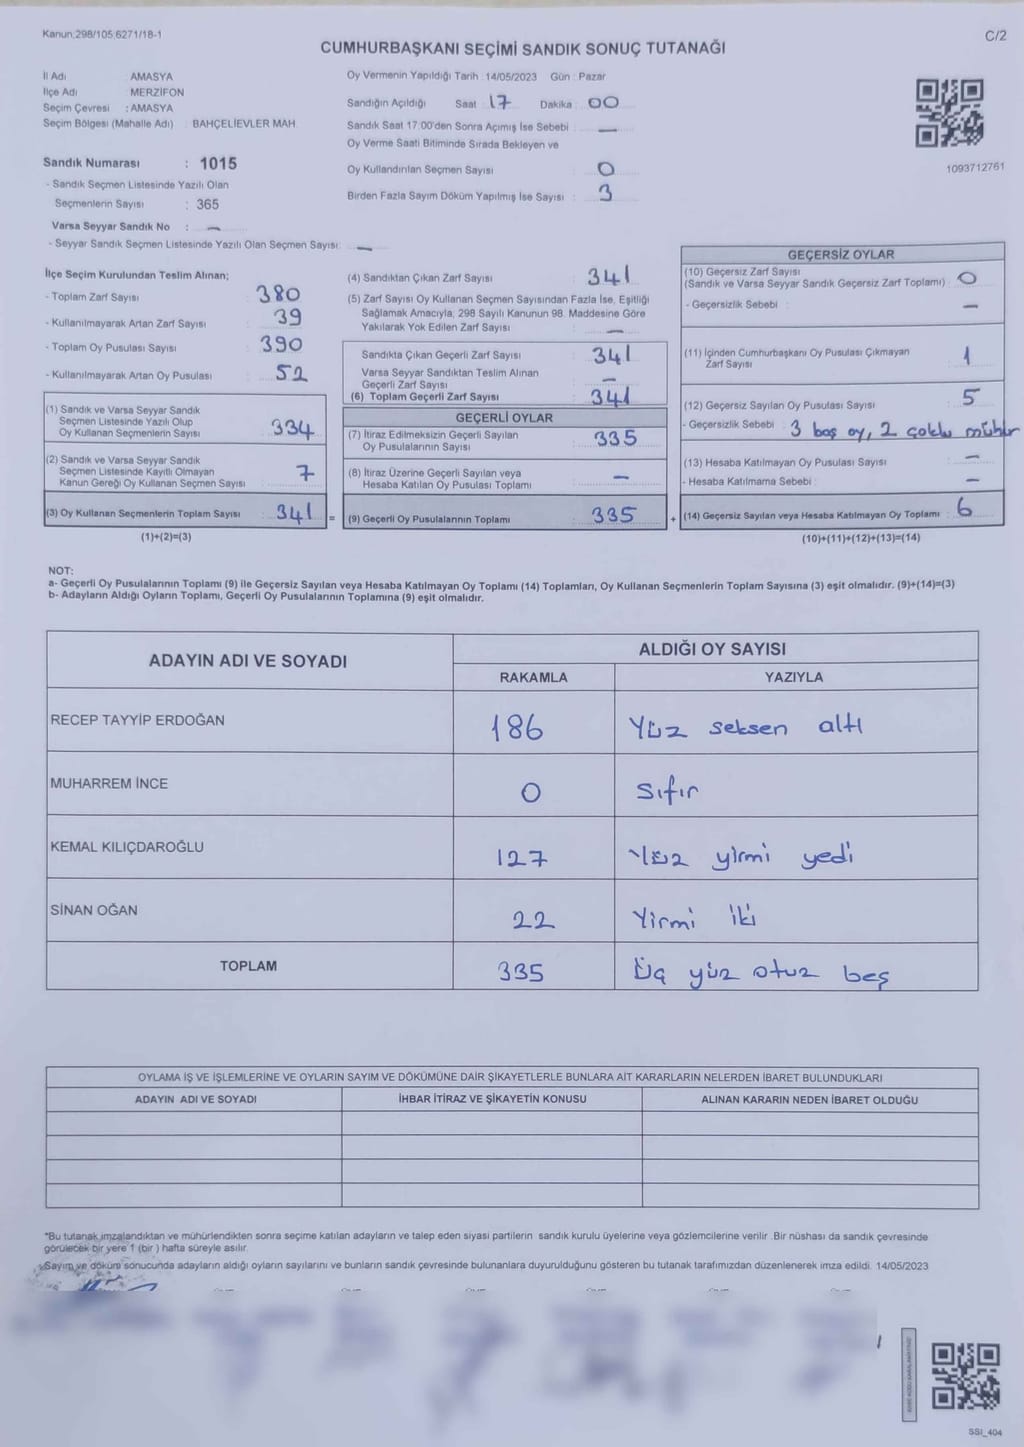 Kanun:298/105;6271/18-1
C/2
CUMHURBAŞKANI SEÇİMİ SANDIK SONUÇ TUTANAĞI
İl Adı : AMASYA
İlçe Adı : MERZİFON
Seçim Çevresi : AMASYA
Seçim Bölgesi (Mahalle Adı) : BAHÇELİEVLER MAH.
Sandık Numarası : 1015
- Sandık Seçmen Listesinde Yazılı Olan
Seçmenlerin Sayısı : 365
Varsa Seyyar Sandık No : —
- Seyyar Sandık Seçmen Listesinde Yazılı Olan Seçmen Sayısı: —
Oy Vermenin Yapıldığı Tarih : 14/05/2023 Gün : Pazar
Sandığın Açıldığı Saat : 17 Dakika : 00
Sandık Saat 17.00'den Sonra Açımış İse Sebebi : —
Oy Verme Saati Bitiminde Sırada Bekleyen ve
Oy Kullandırılan Seçmen Sayısı : 0
Birden Fazla Sayım Döküm Yapılmış İse Sayısı : 3
1093712761
İlçe Seçim Kurulundan Teslim Alınan;
- Toplam Zarf Sayısı : 380
- Kullanılmayarak Artan Zarf Sayısı : 39
- Toplam Oy Pusulası Sayısı : 390
- Kullanılmayarak Artan Oy Pusulası : 52
(1) Sandık ve Varsa Seyyar Sandık
Seçmen Listesinde Yazılı Olup
Oy Kullanan Seçmenlerin Sayısı : 334
(2) Sandık ve Varsa Seyyar Sandık
Seçmen Listesinde Kayıtlı Olmayan
Kanun Gereği Oy Kullanan Seçmen Sayısı : 7
(3) Oy Kullanan Seçmenlerin Toplam Sayısı : 341 =
(1)+(2)=(3)
(4) Sandıktan Çıkan Zarf Sayısı : 341
(5) Zarf Sayısı Oy Kullanan Seçmen Sayısından Fazla İse, Eşitliği
Sağlamak Amacıyla; 298 Sayılı Kanunun 98. Maddesine Göre
Yakılarak Yok Edilen Zarf Sayısı : —
Sandıkta Çıkan Geçerli Zarf Sayısı : 341
Varsa Seyyar Sandıktan Teslim Alınan
Geçerli Zarf Sayısı : —
(6) Toplam Geçerli Zarf Sayısı : 341
GEÇERLİ OYLAR
(7) İtiraz Edilmeksizin Geçerli Sayılan
Oy Pusulalarının Sayısı : 335
(8) İtiraz Üzerine Geçerli Sayılan veya
Hesaba Katılan Oy Pusulası Toplamı : —
(9) Geçerli Oy Pusulalarının Toplamı : 335 +
GEÇERSİZ OYLAR
(10) Geçersiz Zarf Sayısı
(Sandık ve Varsa Seyyar Sandık Geçersiz Zarf Toplamı) : 0
- Geçersizlik Sebebi : —
(11) İçinden Cumhurbaşkanı Oy Pusulası Çıkmayan
Zarf Sayısı : 1
(12) Geçersiz Sayılan Oy Pusulası Sayısı : 5
- Geçersizlik Sebebi : 3 boş oy, 2 çoklu mühür
(13) Hesaba Katılmayan Oy Pusulası Sayısı : —
- Hesaba Katılmama Sebebi : —
(14) Geçersiz Sayılan veya Hesaba Katılmayan Oy Toplamı : 6
(10)+(11)+(12)+(13)=(14)
NOT:
a- Geçerli Oy Pusulalarının Toplamı (9) ile Geçersiz Sayılan veya Hesaba Katılmayan Oy Toplamı (14) Toplamları, Oy Kullanan Seçmenlerin Toplam Sayısına (3) eşit olmalıdır. (9)+(14)=(3)
b- Adayların Aldığı Oyların Toplamı, Geçerli Oy Pusulalarının Toplamına (9) eşit olmalıdır.
ADAYIN ADI VE SOYADI
ALDIĞI OY SAYISI
RAKAMLA YAZIYLA
RECEP TAYYİP ERDOĞAN 186 Yüz seksen altı
MUHARREM İNCE 0 Sıfır
KEMAL KILIÇDAROĞLU 127 Yüz yirmi yedi
SİNAN OĞAN 22 Yirmi iki
TOPLAM 335 Üç yüz otuz beş
OYLAMA İŞ VE İŞLEMLERİNE VE OYLARIN SAYIM VE DÖKÜMÜNE DAİR ŞİKAYETLERLE BUNLARA AİT KARARLARIN NELERDEN İBARET BULUNDUKLARI
ADAYIN ADI VE SOYADI İHBAR İTİRAZ VE ŞİKAYETİN KONUSU ALINAN KARARIN NEDEN İBARET OLDUĞU
*Bu tutanak imzalandıktan ve mühürlendikten sonra seçime katılan adayların ve talep eden siyasi partilerin sandık kurulu üyelerine veya gözlemcilerine verilir. Bir nüshası da sandık çevresinde
görülecek bir yere 1 (bir) hafta süreyle asılır.
*Sayım ve döküm sonucunda adayların aldığı oyların sayılarını ve bunların sandık çevresinde bulunanlara duyurulduğunu gösteren bu tutanak tarafımızdan düzenlenerek imza edildi. 14/05/2023
SSI_404